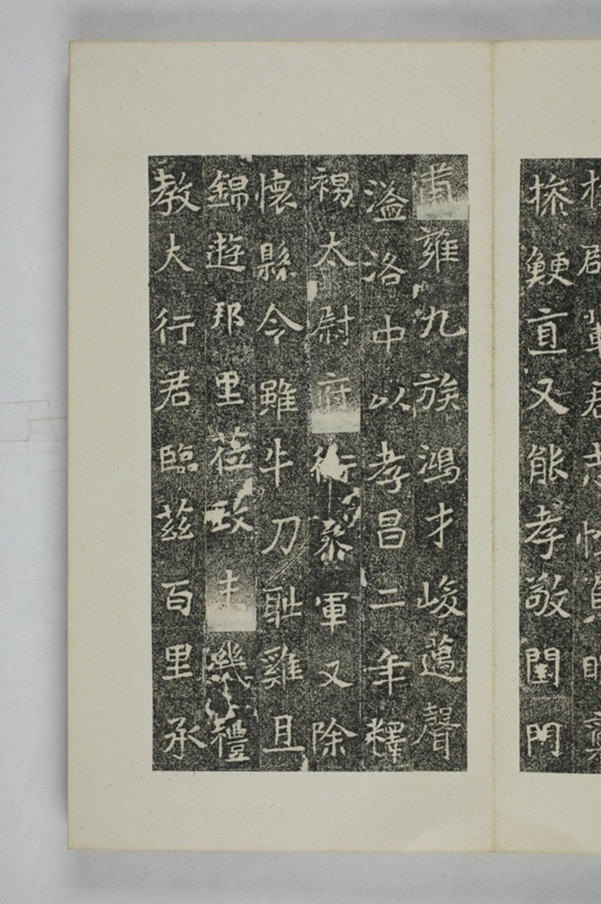 操鯁直又能孝敬閨門
雍九族鴻才峻邁聲
溢洛中以孝昌二年釋
褐太尉府行參軍又除
懷縣令雖牛刀耻雞且
錦遊邦里莅政未幾禮
教大行君臨茲百里承